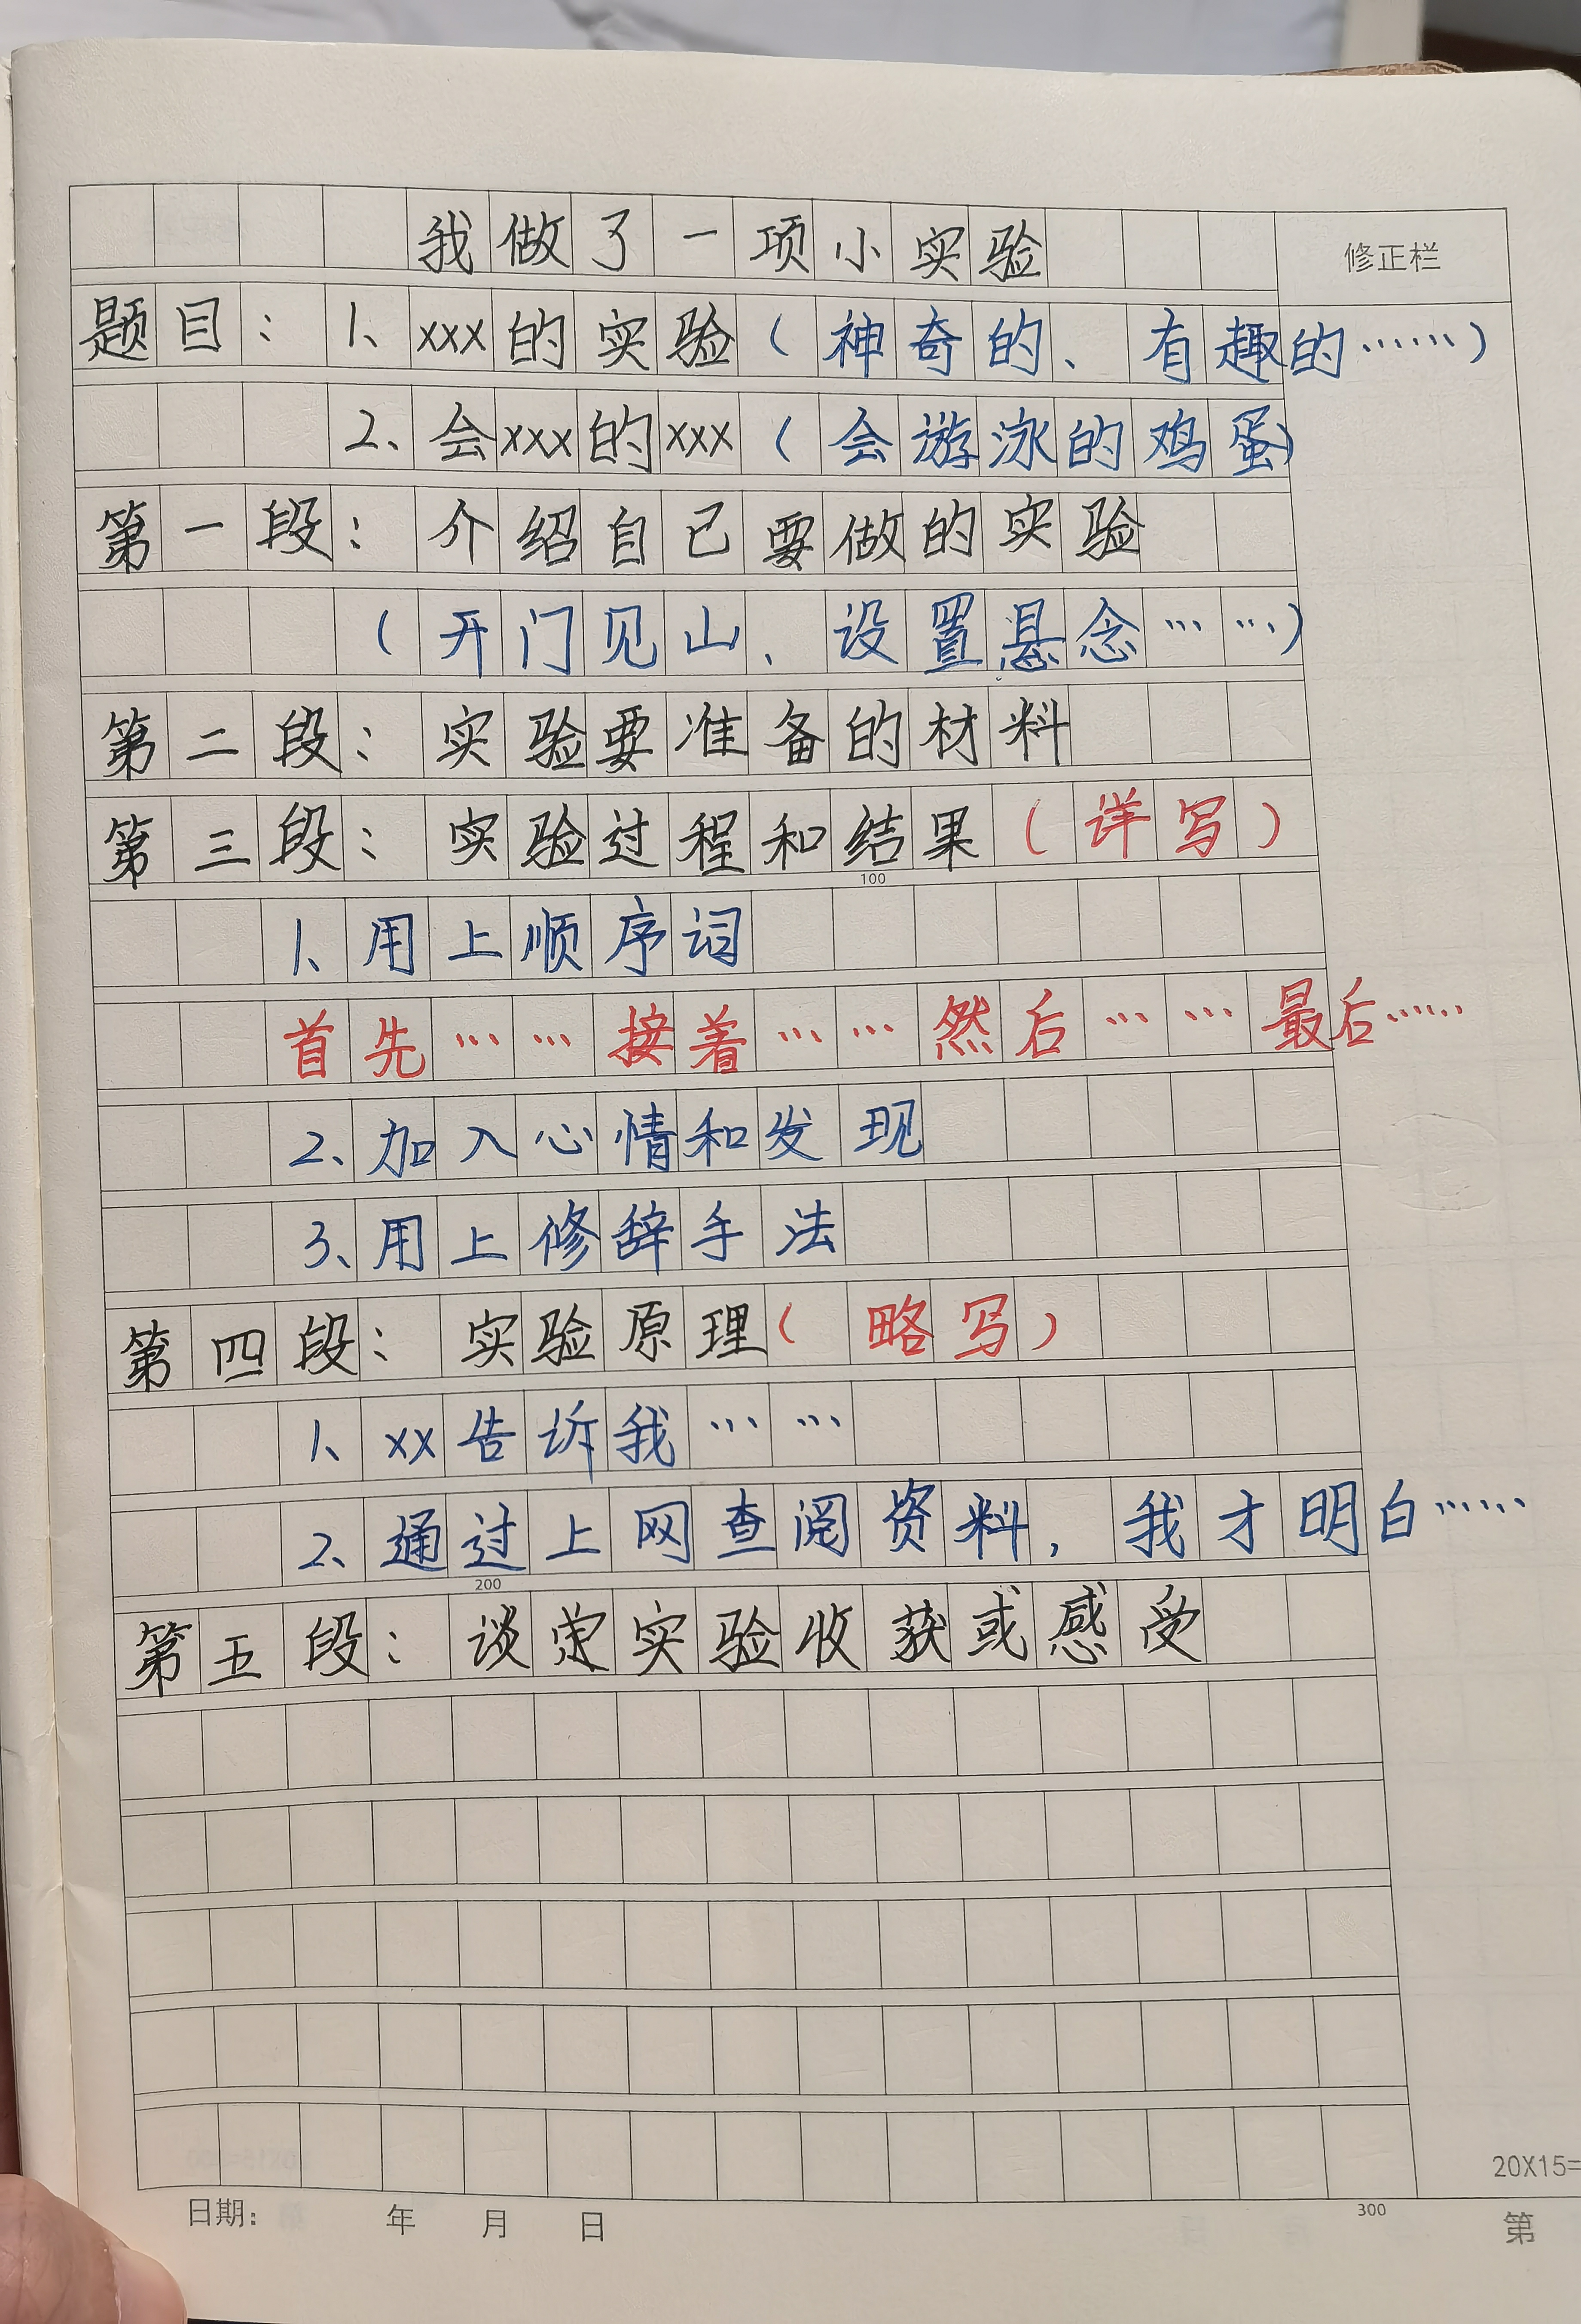 我做了一项小实验
修正栏
题目：1、xxx的实验（神奇的、有趣的……）
2、会xxx的xxx（会游泳的鸡蛋）
第一段：介绍自己要做的实验
（开门见山、设置悬念……）
第二段：实验要准备的材料
第三段：实验过程和结果（详写）
100
1、用上顺序词
首先……接着……然后……最后……
2、加入心情和发现
3、用上修辞手法
第四段：实验原理（略写）
1、xx告诉我……
2、通过上网查阅资料，我才明白……
200
第五段：谈实验收获或感受
20X15=
日期： 年 月 日
300
第